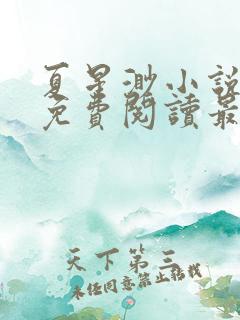 夏星渺小說
免費閱讀最
天下第三
未經同意禁止轉載